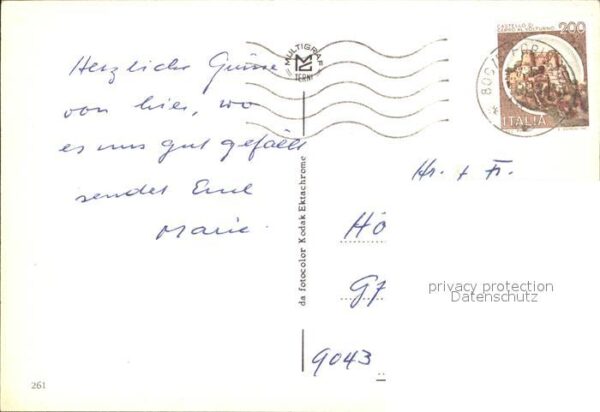 Herzliche Grüsse
von hier, wo
es uns gut gefällt
sendet Euch
Marie
MULTIGRAF
TERNI
CASTELLO DI
CERRO AL VOLTURNO 200
ITALIA
da fotocolor Kodak Ektachrome
Hr. + Fr.
HO
G7
9043
privacy protection
Datenschutz
261